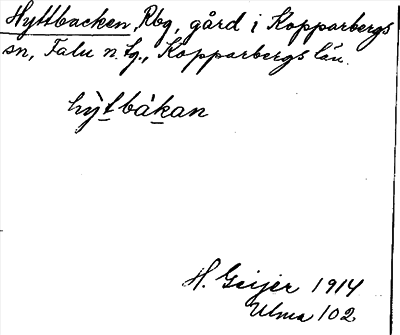 Hyttbacken, Rbg, gård i Kopparbergs
sn, Falu n. tg., Kopparbergs län.
hy̆tbákan
H. Geijer 1914
Ulma 102